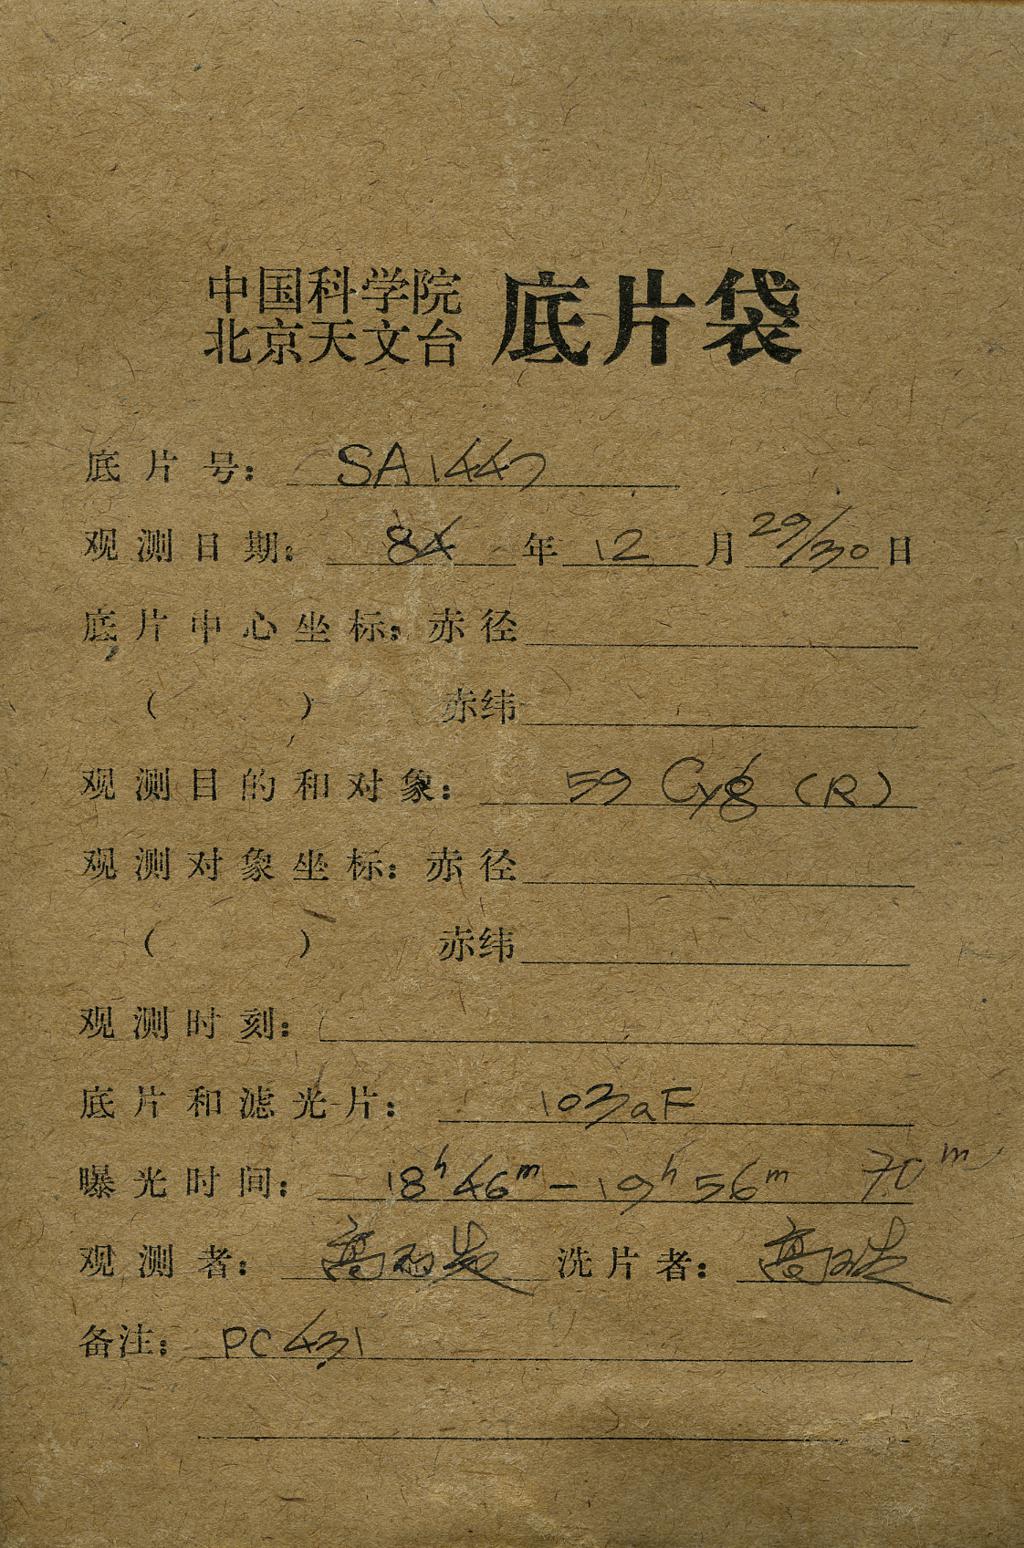 中国科学院
北京天文台 底片袋
底片号： SA1447
观测日期： 84 年 12 月 29/30 日
底片中心坐标：赤径
（ ） 赤纬
观测目的和对象： 59 Cyg (R)
观测对象坐标：赤径
（ ） 赤纬
观测时刻：
底片和滤光片： 103aF
曝光时间： 18h46m - 19h56m 70m
观测者： 洗片者：
备注： PC 431